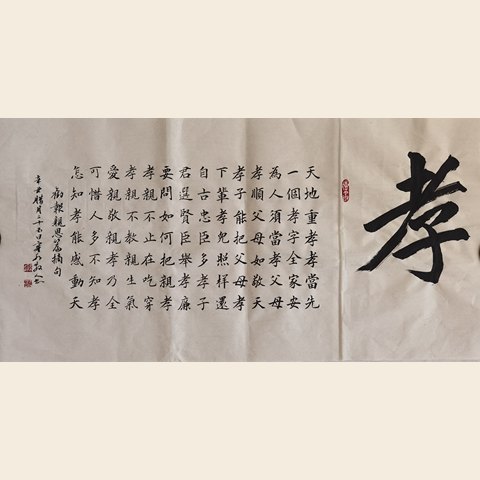 孝
天地重孝孝當先
一個孝字全家安
為人須當孝父母
孝順父母如敬天
孝子能把父母孝
下輩孝兒照樣還
自古忠臣多孝子
君選賢臣舉孝廉
要問如何把親孝
孝親不止在吃穿
孝親不教親生氣
愛親敬親孝乃全
可惜人多不知孝
怎知孝能感動天
勸報親恩篇摘句
辛丑臘月二十